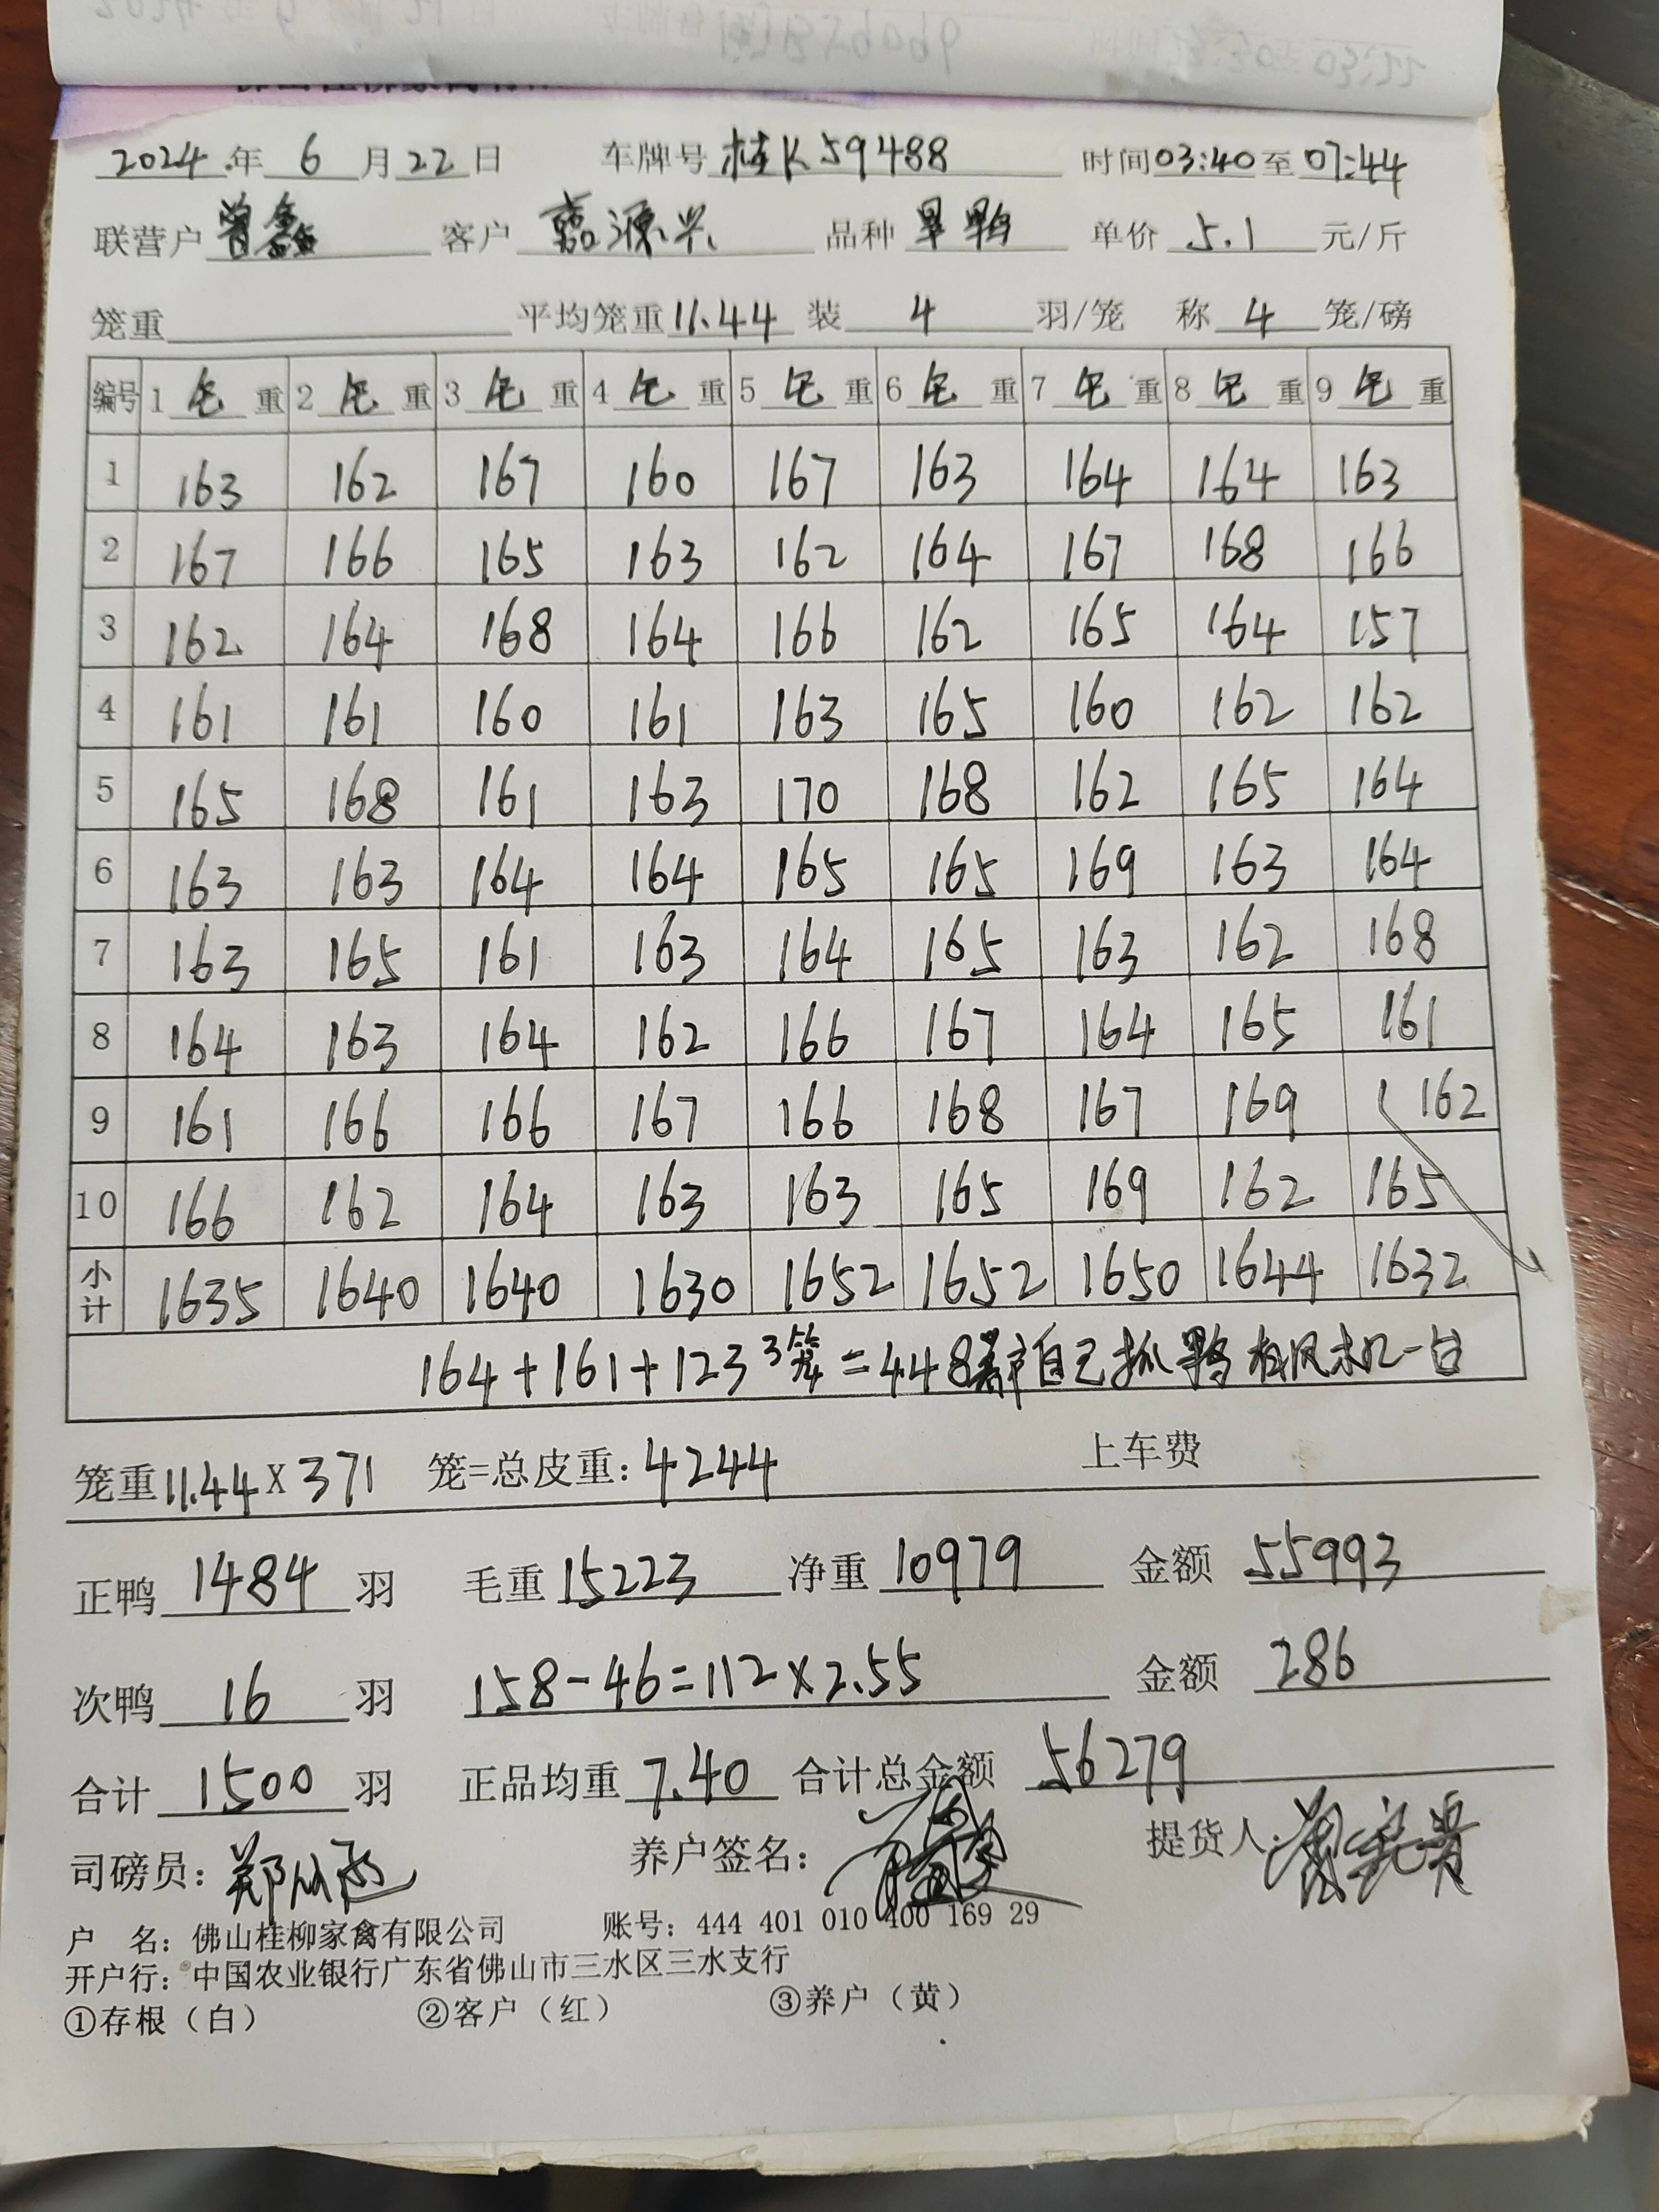 2024 年 6 月 22 日 车牌号 桂K59488 时间 03:40 至 07:44
联营户 曾鑫 客户 嘉源兴 品种 单价 5.1 元/斤
笼重 平均笼重 11.44 装 4 羽/笼 称 4 笼/磅
编号 1 毛 重 2 毛 重 3 毛 重 4 毛 重 5 毛 重 6 毛 重 7 毛 重 8 毛 重 9 毛 重
1 163 162 167 160 167 163 164 164 163
2 167 166 165 163 162 164 167 168 166
3 162 164 168 164 166 162 165 164 157
4 161 161 160 161 163 165 160 162 162
5 165 168 161 163 170 168 162 165 164
6 163 163 164 164 165 165 169 163 164
7 163 165 161 163 164 165 163 162 168
8 164 163 164 162 166 167 164 165 161
9 161 166 166 167 166 168 167 169 162
10 166 162 164 163 163 165 169 162 165
小计 1635 1640 1640 1630 1652 1652 1650 1644 1632
164+161+123 3笼=448 自己抓 有风机一台
笼重 11.44 X 371 笼=总皮重: 4244 上车费
正鸭 1484 羽 毛重 15223 净重 10979 金额 55993
次鸭 16 羽 158-46=112×2.55 金额 286
合计 1500 羽 正品均重 7.40 合计总金额 56279
司磅员: 养户签名: 提货人:
户 名: 佛山桂柳家禽有限公司 账号: 444 401 010 400 169 29
开户行: 中国农业银行广东省佛山市三水区三水支行
①存根（白） ②客户（红） ③养户（黄）